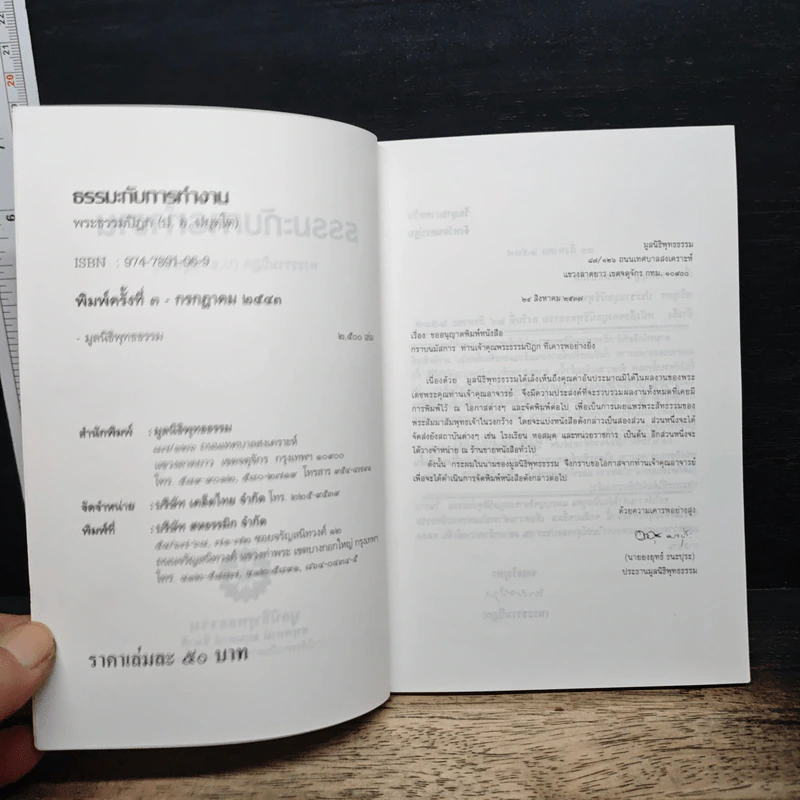 ธรรมะกับการทำงาน
พระธรรมปิฎก (ป. อ. ปยุตฺโต)
ISBN : 974-7891-96-9
พิมพ์ครั้งที่ ๓ - กรกฎาคม ๒๕๔๓
- มูลนิธิพุทธธรรม ๒,๕๐๐ เล่ม
สำนักพิมพ์ : มูลนิธิพุทธธรรม
๘๗/๑๒๖ ถนนเทศบาลสงเคราะห์
แขวงลาดยาว เขตจตุจักร กรุงเทพฯ ๑๐๙๐๐
โทร. โทรสาร
จัดจำหน่าย : บริษัท เคล็ดไทย จำกัด โทร. ๒๒๕-๙๕๓๙
พิมพ์ที่ : บริษัท สหธรรมิก จำกัด
ซอยจรัญสนิทวงศ์ ๑๒
ถนนจรัญสนิทวงศ์ แขวงท่าพระ เขตบางกอกใหญ่ กรุงเทพฯ
โทร.
ราคาเล่มละ ๕๐ บาท
มูลนิธิพุทธธรรม
๘๗/๑๒๖ ถนนเทศบาลสงเคราะห์
แขวงลาดยาว เขตจตุจักร กทม. ๑๐๙๐๐
๒๔ สิงหาคม ๒๕๓๗
เรื่อง ขออนุญาตพิมพ์หนังสือ
กราบนมัสการ ท่านเจ้าคุณพระธรรมปิฎก ที่เคารพอย่างยิ่ง
เนื่องด้วย มูลนิธิพุทธธรรมได้เล็งเห็นถึงคุณค่าอันประมาณมิได้ในผลงานของพระ
เดชพระคุณท่านเจ้าคุณอาจารย์ จึงมีความประสงค์ที่จะรวบรวมผลงานทั้งหมดที่เคยมี
การพิมพ์ไว้ ณ โอกาสต่างๆ และจัดพิมพ์ต่อไป เพื่อเป็นการเผยแผ่พระสัทธรรมของ
พระสัมมาสัมพุทธเจ้าในวงกว้าง โดยจะแบ่งหนังสือดังกล่าวเป็นสองส่วน ส่วนหนึ่งจะได้
จัดส่งยังสถาบันต่างๆ เช่น โรงเรียน หอสมุด และหน่วยราชการ เป็นต้น อีกส่วนหนึ่งจะ
ได้วางจำหน่าย ณ ร้านขายหนังสือทั่วไป
ดังนั้น กระผมในนามของมูลนิธิพุทธธรรม จึงกราบขอโอกาสจากท่านเจ้าคุณอาจารย์
เพื่อจะได้ดำเนินการจัดพิมพ์หนังสือดังกล่าวต่อไป
ด้วยความเคารพอย่างสูง
(นายองยุทธ์ ธนะปุระ)
ประธานมูลนิธิพุทธธรรม